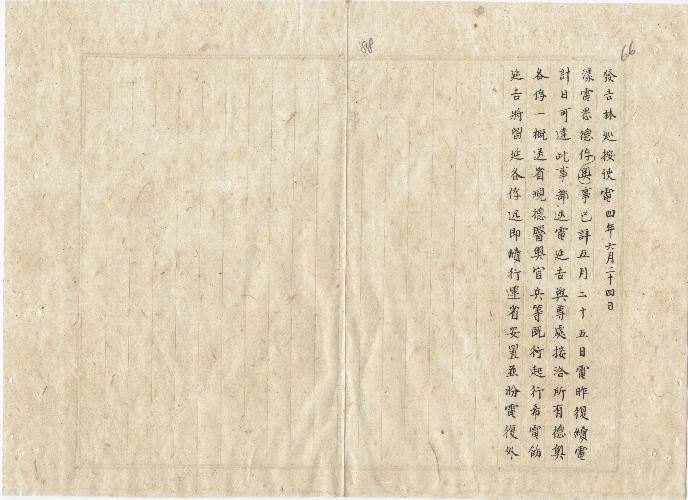 發吉林巡按使電四年六月二十四日
漾電悉德俘(奧)事已詳五月二十五日電昨復續電
計日可達此事部迭電延吉與尊處接洽所有德奧
各俘一概送省現德醫奧官兵等既行起行希電飭
延吉將留延各俘迅即續行運省安置並盼電復外
66
88